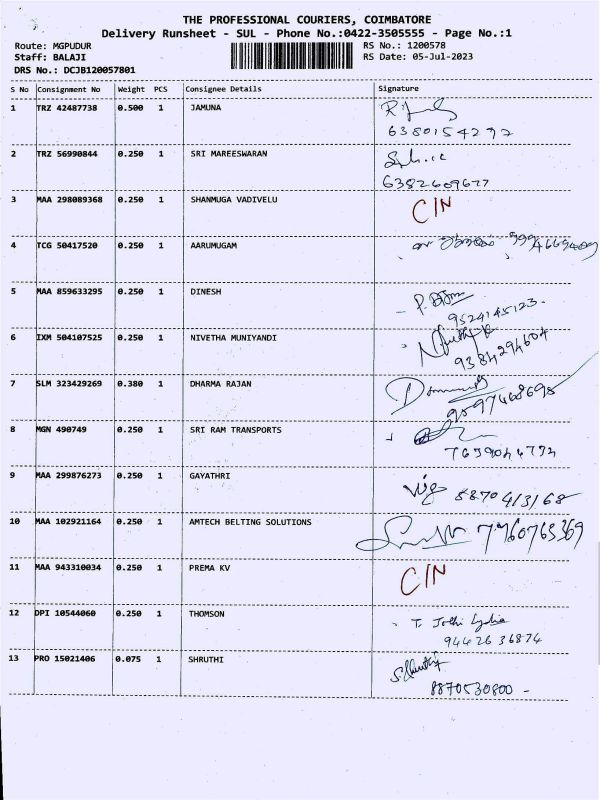 THE PROFESSIONAL COURIERS, COIMBATORE
Delivery Runsheet - SUL - Phone No.:0422-3505555 - Page No.:1
Route: MGPUDUR RS No.: 1200578
Staff: BALAJI RS Date: 05-Jul-2023
DRS No.: DCJB120057801
S No Consignment No Weight PCS Consignee Details Signature
1 TRZ 42487738 0.500 1 JAMUNA
6380154292
2 TRZ 56990844 0.250 1 SRI MAREESWARAN
6382609677
3 MAA 298089368 0.250 1 SHANMUGA VADIVELU C/N
4 TCG 50417520 0.250 1 AARUMUGAM
5 MAA 859633295 0.250 1 DINESH
9524145123.
6 IXM 504107525 0.250 1 NIVETHA MUNIYANDI
9384294604
7 SLM 323429269 0.380 1 DHARMA RAJAN
9597468698
8 MGN 490749 0.250 1 SRI RAM TRANSPORTS
9 MAA 299876273 0.250 1 GAYATHRI
10 MAA 102921164 0.250 1 AMTECH BELTING SOLUTIONS
11 MAA 943310034 0.250 1 PREMA KV C/N
12 DPI 10544060 0.250 1 THOMSON T. Jothi Lydia
94426 36874
13 PRO 15021406 0.075 1 SHRUTHI S.Shruthi
8870530800 -